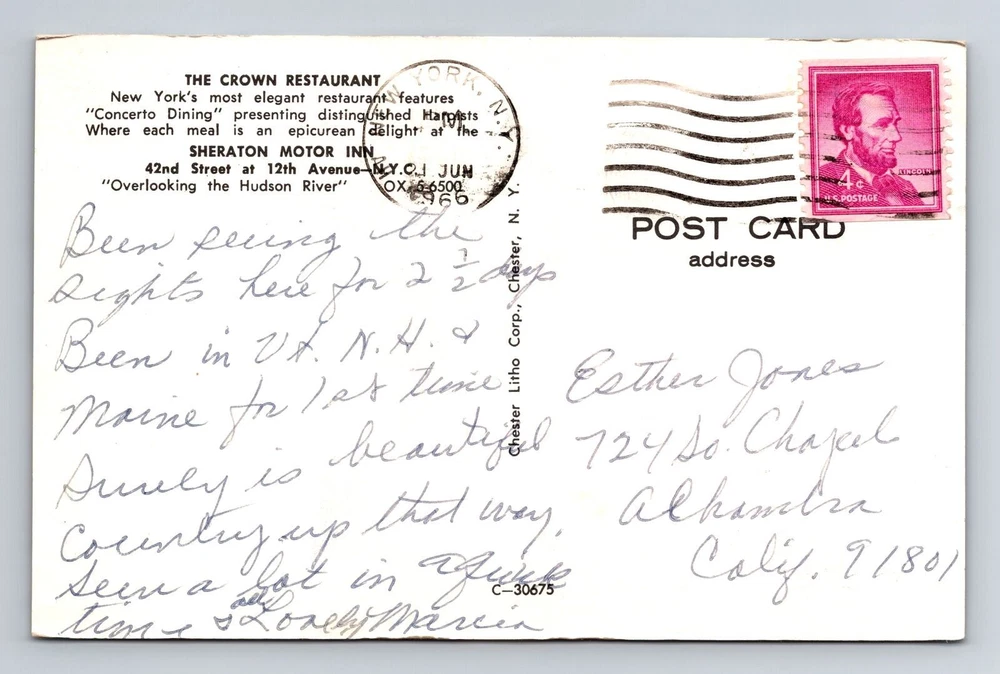 THE CROWN RESTAURANT
New York's most elegant restaurant features
"Concerto Dining" presenting distinguished Harpists
Where each meal is an epicurean delight at the
SHERATON MOTOR INN
42nd Street at 12th Avenue—N.Y.C.
"Overlooking the Hudson River" OX. 5-6500
NEW YORK, N.Y.
JUN
1966
LINCOLN
4¢
U.S. POSTAGE
POST CARD
address
Chester Litho Corp., Chester, N. Y.
Been seeing the
sights here for 2 1/2 days
Been in Vt. N.H. &
Maine for 1st time
Surely is beautiful
country up that way.
Seen a lot in a quick
time & all Lovely Marcia
C—30675
Esther Jones
724 So. Chapel
Alhambra
Calif. 91801